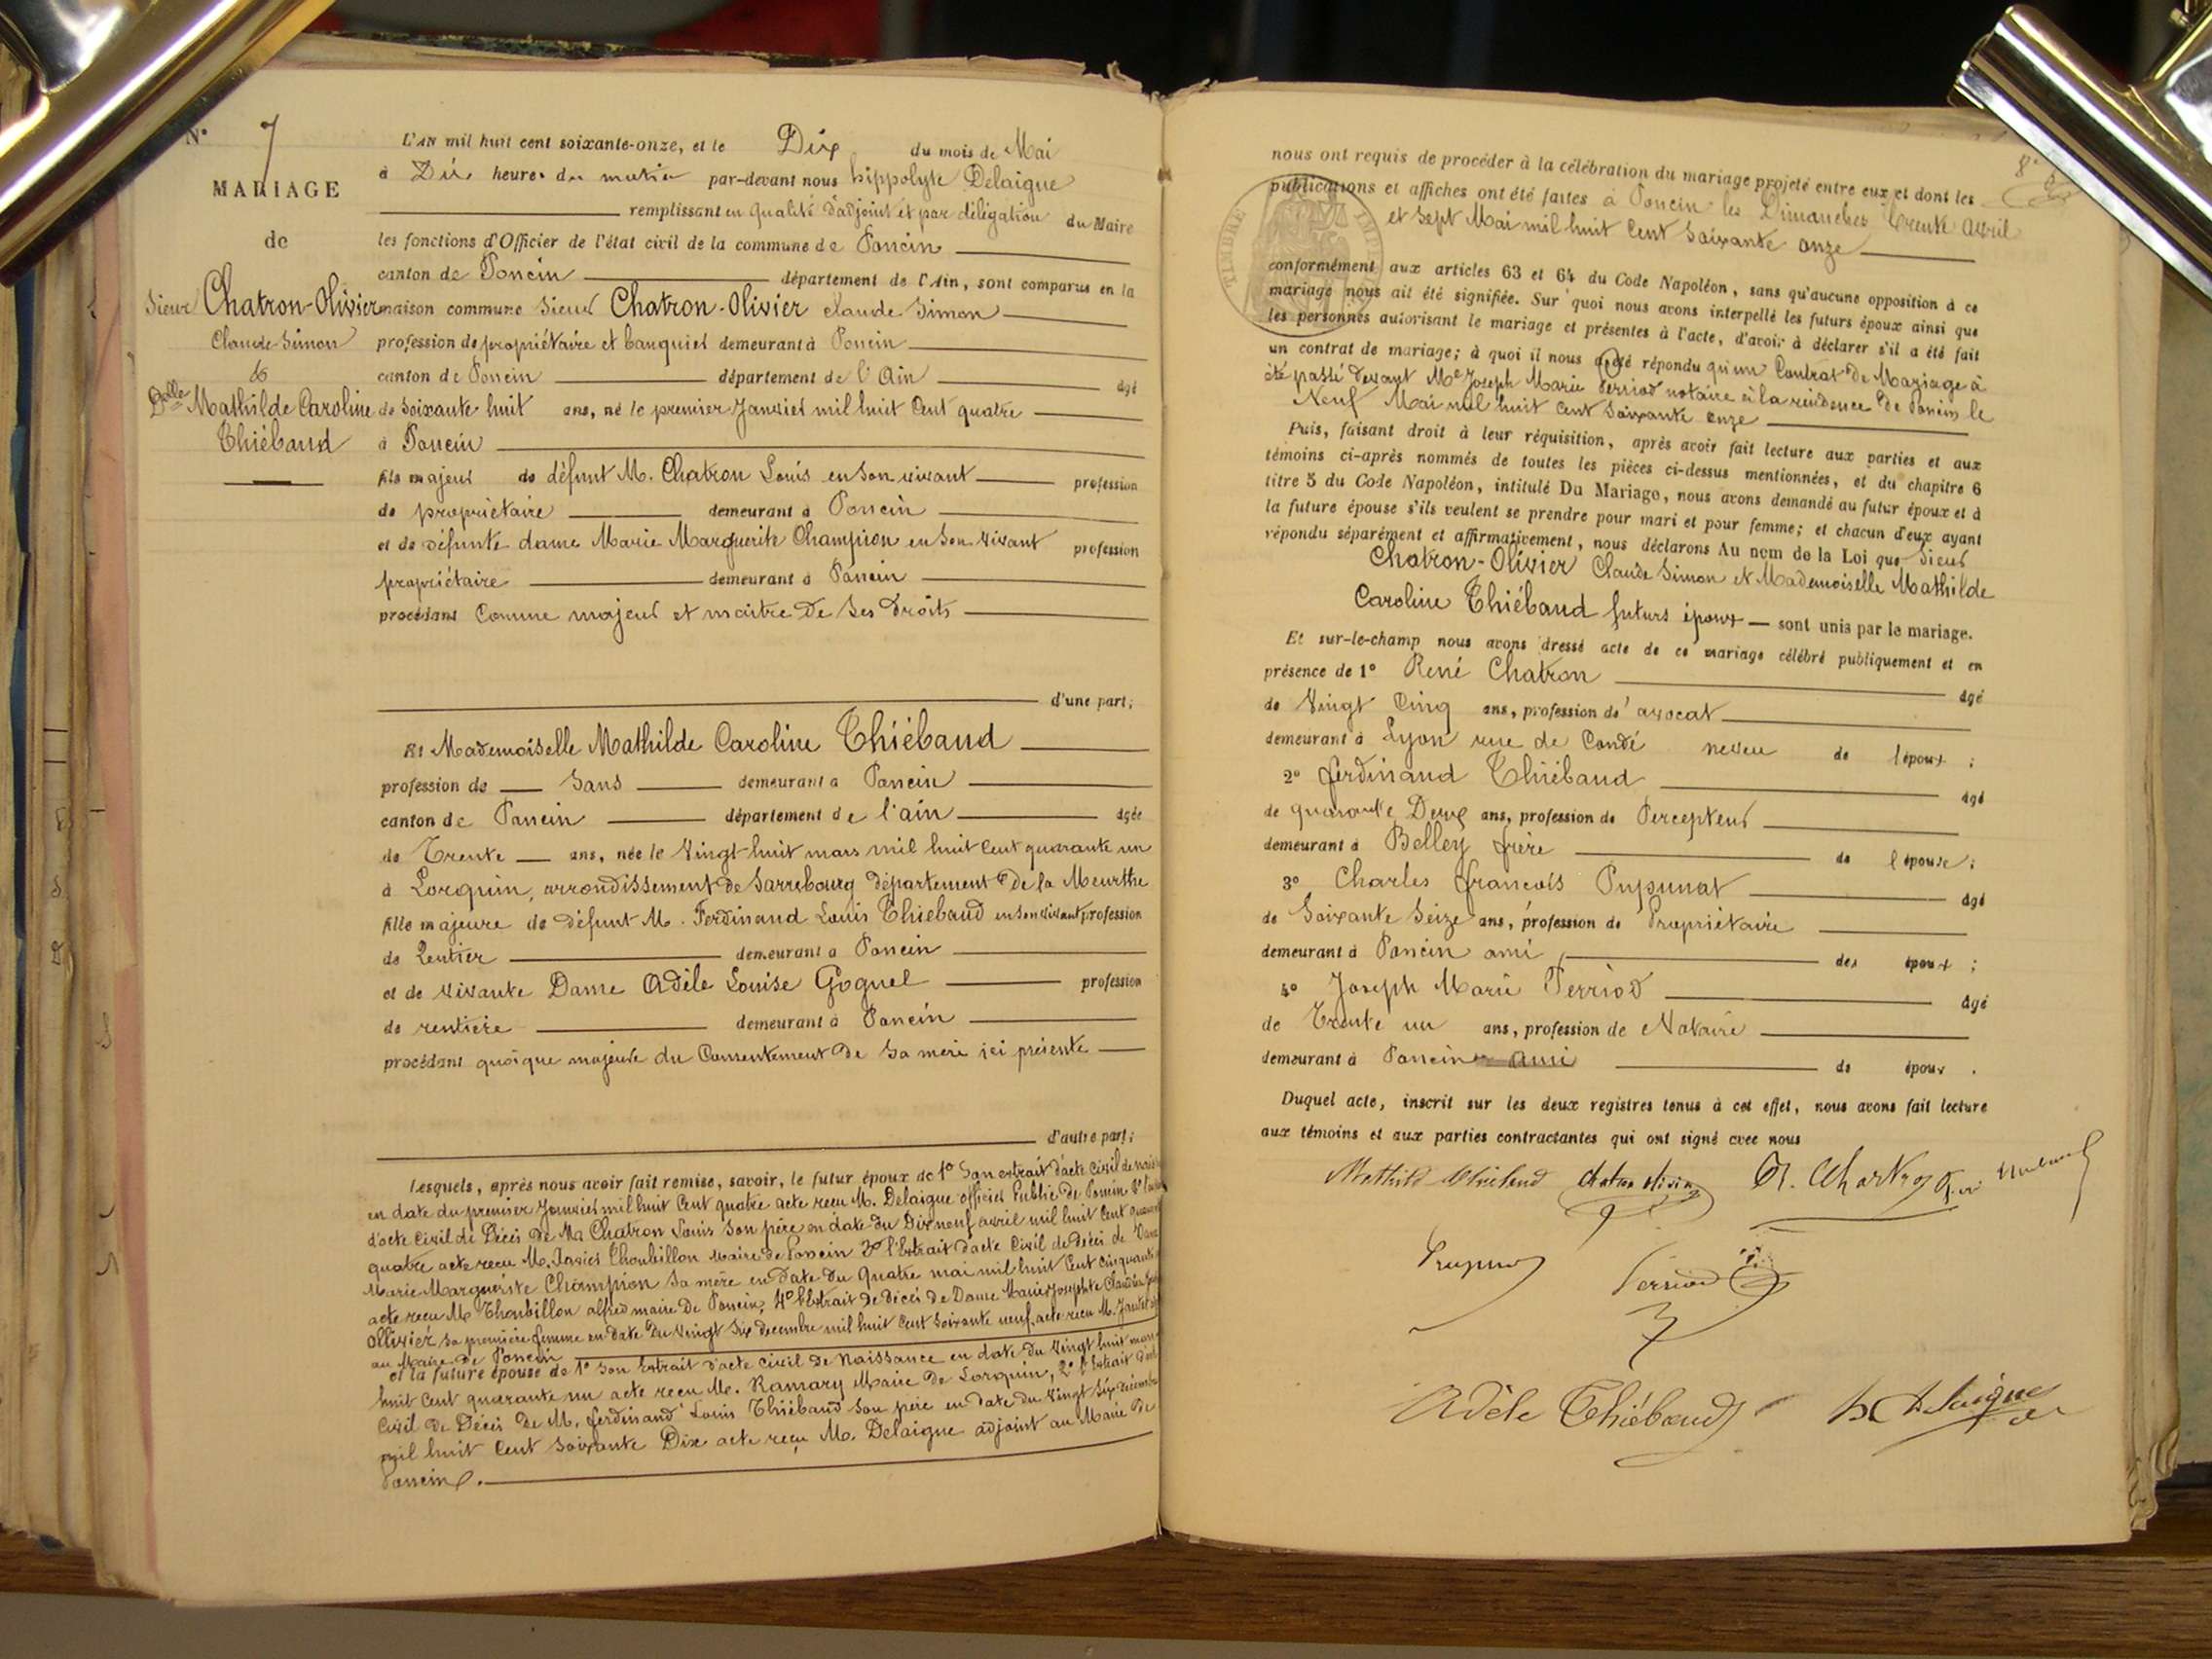 N° 7
MARIAGE
de
Sieur Chatron-Olivier
Claude Simon
&
Delle Mathilde Caroline
Thiébaud
L'AN mil huit cent soixante-onze, et le Dix du mois de Mai
à Dix heures du matin par-devant nous hippolyte Delaigue
remplissant en qualité d'adjoint et par délégation du Maire
les fonctions d'Officier de l'état civil de la commune de Poncin
canton de Poncin département de l'Ain, sont comparus en la
maison commune Sieur Chatron-Olivier claude Simon
profession de propriétaire et banquier demeurant à Poncin
canton de Poncin département de l'Ain âgé
de Soixante huit ans, né le premier Janvier mil huit Cent quatre
à Poncin
fils majeur de défunt M. Chatron Louis en son vivant profession
de propriétaire demeurant à Poncin
et de défunte dame Marie Marguerite Champion en son vivant profession
propriétaire demeurant à Poncin
procédant Comme majeur et maître de Ses droits
d'une part;
Et Mademoiselle Mathilde Caroline Thiébaud
profession de Sans demeurant à Poncin
canton de Poncin département de l'ain âgée
de Trente ans, née le Vingt huit mars mil huit Cent quarante un
à Lorquin, arrondissement de Sarrebourg département de la Meurthe
fille majeure de défunt M. Ferdinand Louis Thiébaud en son vivant profession
de Rentier demeurant à Poncin
et de vivante Dame Adèle Louise Goguel profession
de rentière demeurant à Poncin
procédant quoique majeure du Consentement de Sa mère ici présente
d'autre part;
Lesquels, après nous avoir fait remise, savoir, le futur époux de 1° Son extrait d'acte Civil de
en date du premier Janvier mil huit Cent quatre acte reçu M. Delaigue officier Public de Poncin 2°
d'acte Civil de Décès de M. Chatron Louis Son père en date du Dix neuf avril mil huit Cent
quatre acte reçu M. Xavier Thoubillon maire de Poncin 3° l'Extrait d'acte Civil de décès de
Marie Marguerite Champion Sa mère en date du Quatre mai mil huit Cent cinquante
acte reçu M. Thoubillon alfred maire de Poncin, 4° l'Extrait de décès de Dame Marie Josephte
Ollivier Sa première femme en date du Vingt Six decembre mil huit Cent Soixante neuf acte reçu M.
au Maire de Poncin
et la future épouse de 1° Son Extrait d'acte civil de Naissance en date du Vingt huit
huit Cent quarante un acte reçu M. Ramary Maire de Lorquin, 2° l'Extrait
Civil de Décès de M. ferdinand Louis Thiébaud Son père en date du Vingt Six décembre
mil huit Cent Soixante Dix acte reçu M. Delaigue adjoint au Maire de
Poncin.
nous ont requis de procéder à la célébration du mariage projeté entre eux et dont les
publications et affiches ont été faites à Poncin les Dimanches Trente Avril
et Sept Mai mil huit Cent Soixante onze
conformément aux articles 63 et 64 du Code Napoléon, sans qu'aucune opposition à ce
mariage nous ait été signifiée. Sur quoi nous avons interpellé les futurs époux ainsi que
les personnes autorisant le mariage et présentes à l'acte, d'avoir à déclarer s'il a été fait
un contrat de mariage; à quoi il nous a été répondu qu'un Contrat de Mariage a
été passé devant Me Joseph Marie Perriod notaire à la résidence de Poncin le
Neuf Mai mil huit Cent Soixante onze
Puis, faisant droit à leur réquisition, après avoir fait lecture aux parties et aux
témoins ci-après nommés de toutes les pièces ci-dessus mentionnées, et du chapitre 6
titre 5 du Code Napoléon, intitulé Du Mariage, nous avons demandé au futur époux et à
la future épouse s'ils veulent se prendre pour mari et pour femme; et chacun d'eux ayant
répondu séparément et affirmativement, nous déclarons Au nom de la Loi que Sieur
Chatron-Olivier Claude Simon et Mademoiselle Mathilde
Caroline Thiébaud futurs époux sont unis par le mariage.
Et sur-le-champ nous avons dressé acte de ce mariage célébré publiquement et en
présence de 1° René Chatron âgé
de Vingt Cinq ans, profession d'avocat
demeurant à Lyon rue de Condé neveu de l'époux;
2° ferdinand Thiébaud âgé
de quarante Deux ans, profession de Percepteur
demeurant à Belley frère de l'épouse;
3° Charles francois Pupunat âgé
de Soixante Seize ans, profession de Propriétaire
demeurant à Poncin ami des époux;
4° Joseph Marie Perriod âgé
de Trente un ans, profession de Notaire
demeurant à Poncin ami de époux.
Duquel acte, inscrit sur les deux registres tenus à cet effet, nous avons fait lecture
aux témoins et aux parties contractantes qui ont signé avec nous
Mathilde Thiébaud Chatron Olivier R. Chatron
Perriod
Adèle Thiébaud h Delaigue
TIMBRE